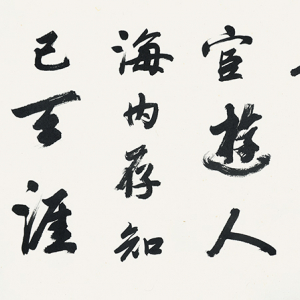 宦遊人
海内存知
己天涯